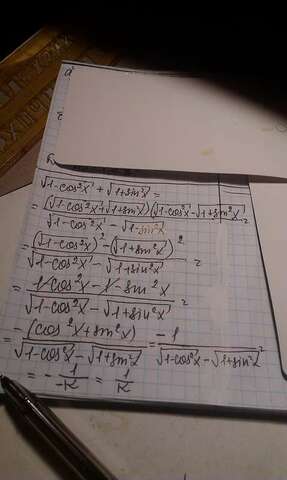 √1-cos²x + √1+sin²x =
= (√1-cos²x + √1+sin²x)(√1-cos²x - √1+sin²x) / √1-cos²x - √1-sin²x =
= (√1-cos²x)² - (√1+sin²x)² / √1-cos²x - √1+sin²x =
= 1-cos²x - 1 - sin²x / √1-cos²x - √1+sin²x =
= -(cos²x + sin²x) / √1-cos²x - √1+sin²x = -1 / √1-cos²x - √1+sin²x =
= - 1/-K = 1/K